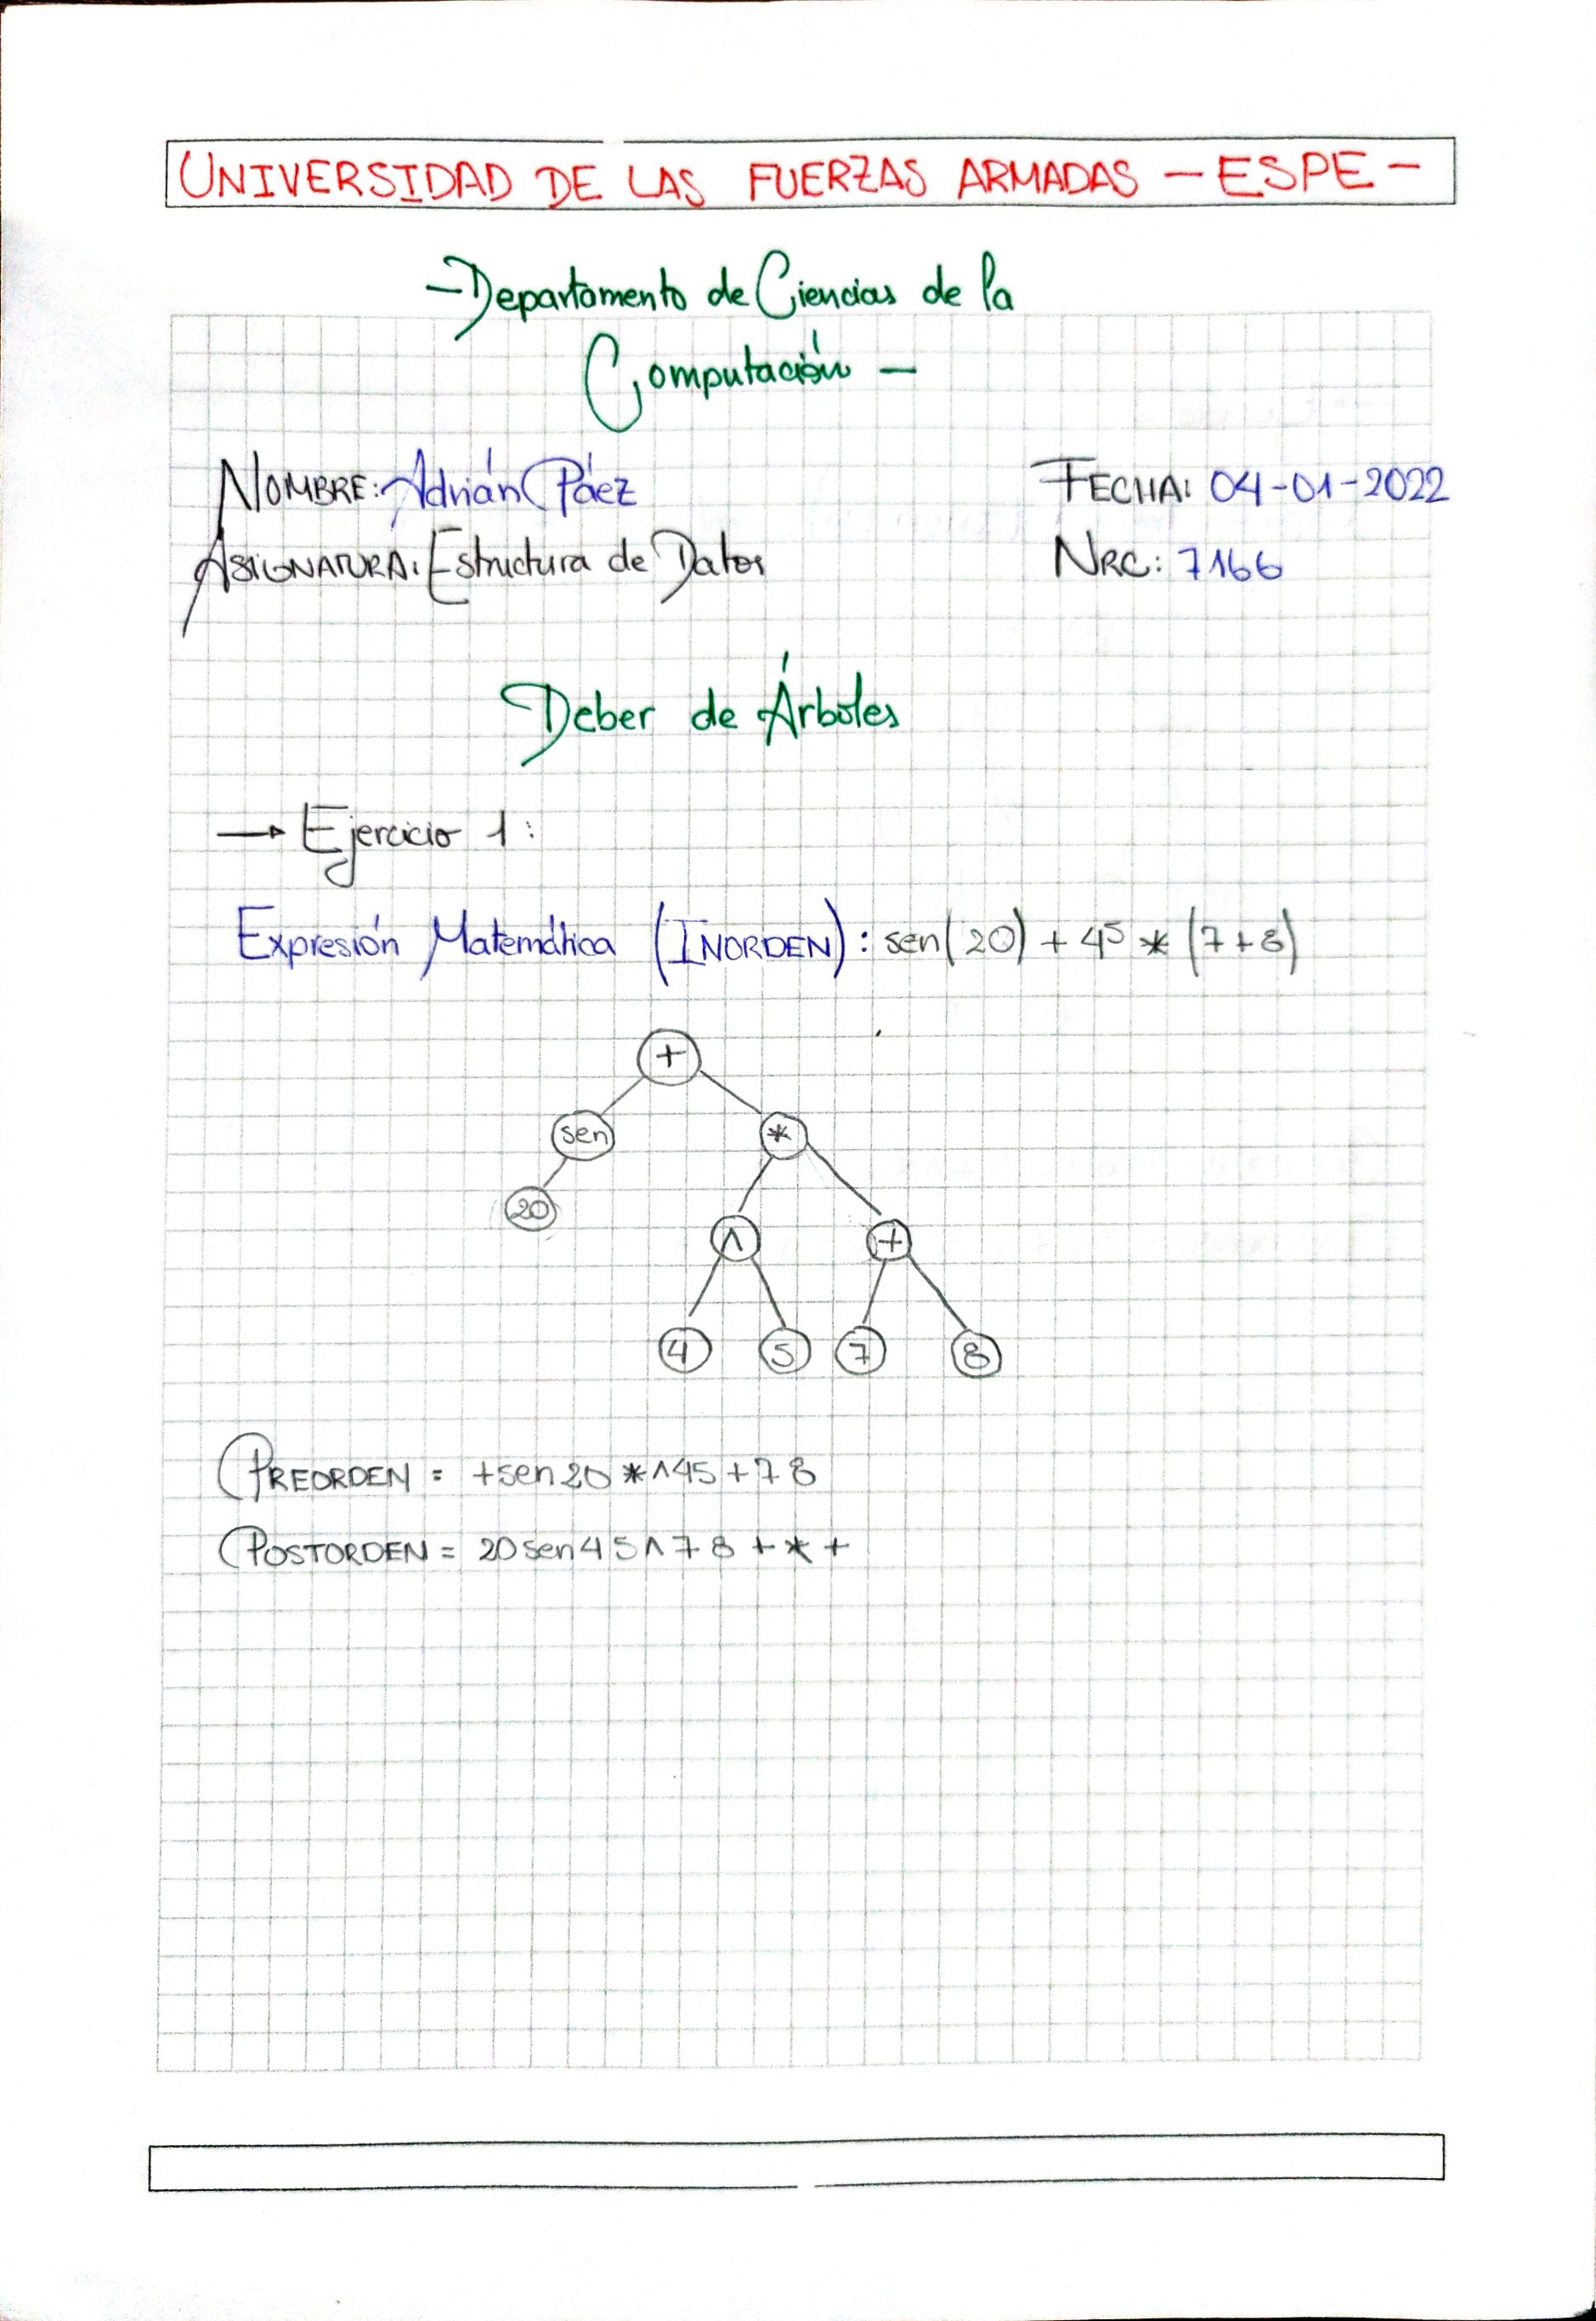 UNIVERSIDAD DE LAS FUERZAS ARMADAS - ESPE -
- Departamento de Ciencias de la
Computación -
NOMBRE: Adrián Páez FECHA: 04-01-2022
ASIGNATURA: Estructura de Datos NRC: 7166
Deber de Árboles
→ Ejercicio 1:
Expresión Matemática (INORDEN): sen(20) + 4⁵ * (7+8)
+
sen *
20
^ +
4 5 7 8
PREORDEN = +sen20*^45+78
POSTORDEN = 20sen45^78+*+